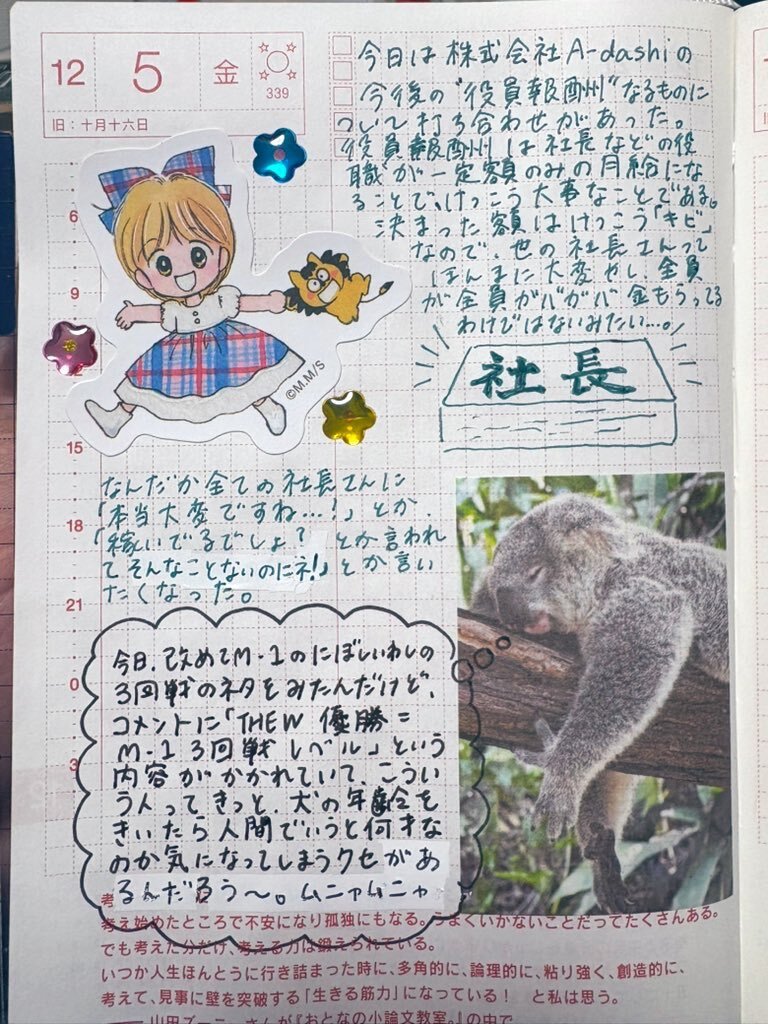 12
5
金
339
旧：十月十六日
今日は株式会社A-dashiの
今後の"役員報酬"なるものに
ついて打ち合わせがあった。
役員報酬は社長などの役
職が一定額のみの月給にな
ることで、けっこう大事なことである。
決まった額はけっこう「キビ」
なので、世の社長さんって
ほんまに大変やし、全員
が全員ガバガバ金もらってる
わけではないみたい…。
6
9
©M.M/S
社長
15
なんだか全ての社長さんに
「本当大変ですね…!」とか、
18
「稼いでるでしょ？ とか言われ
てそんなことないのにネ!」とか言い
たくなった。
21
今日、改めてM-1のにぼしいわしの
3回戦のネタをみたんだけど、
0
コメントに「THEW 優勝=
M-1 3回戦レベル」という
内容がかかれていて、こうい
3
う人ってきっと、犬の年齢を
きいたら人間でいうと何才な
のか気になってしまうクセがあ
るんだろう〜。ムニャムニャ
考
考え始めたところで不安になり孤独にもなる。うまくいかないことだってたくさんある。
でも考えた分だけ、考える力は鍛えられている。
いつか人生ほんとうに行き詰まった時に、多角的に、論理的に、粘り強く、創造的に、
考えて、見事に壁を突破する「生きる筋力」になっている！ と私は思う。
山田ズーニーさんが『おとなの小論文教室。』の中で